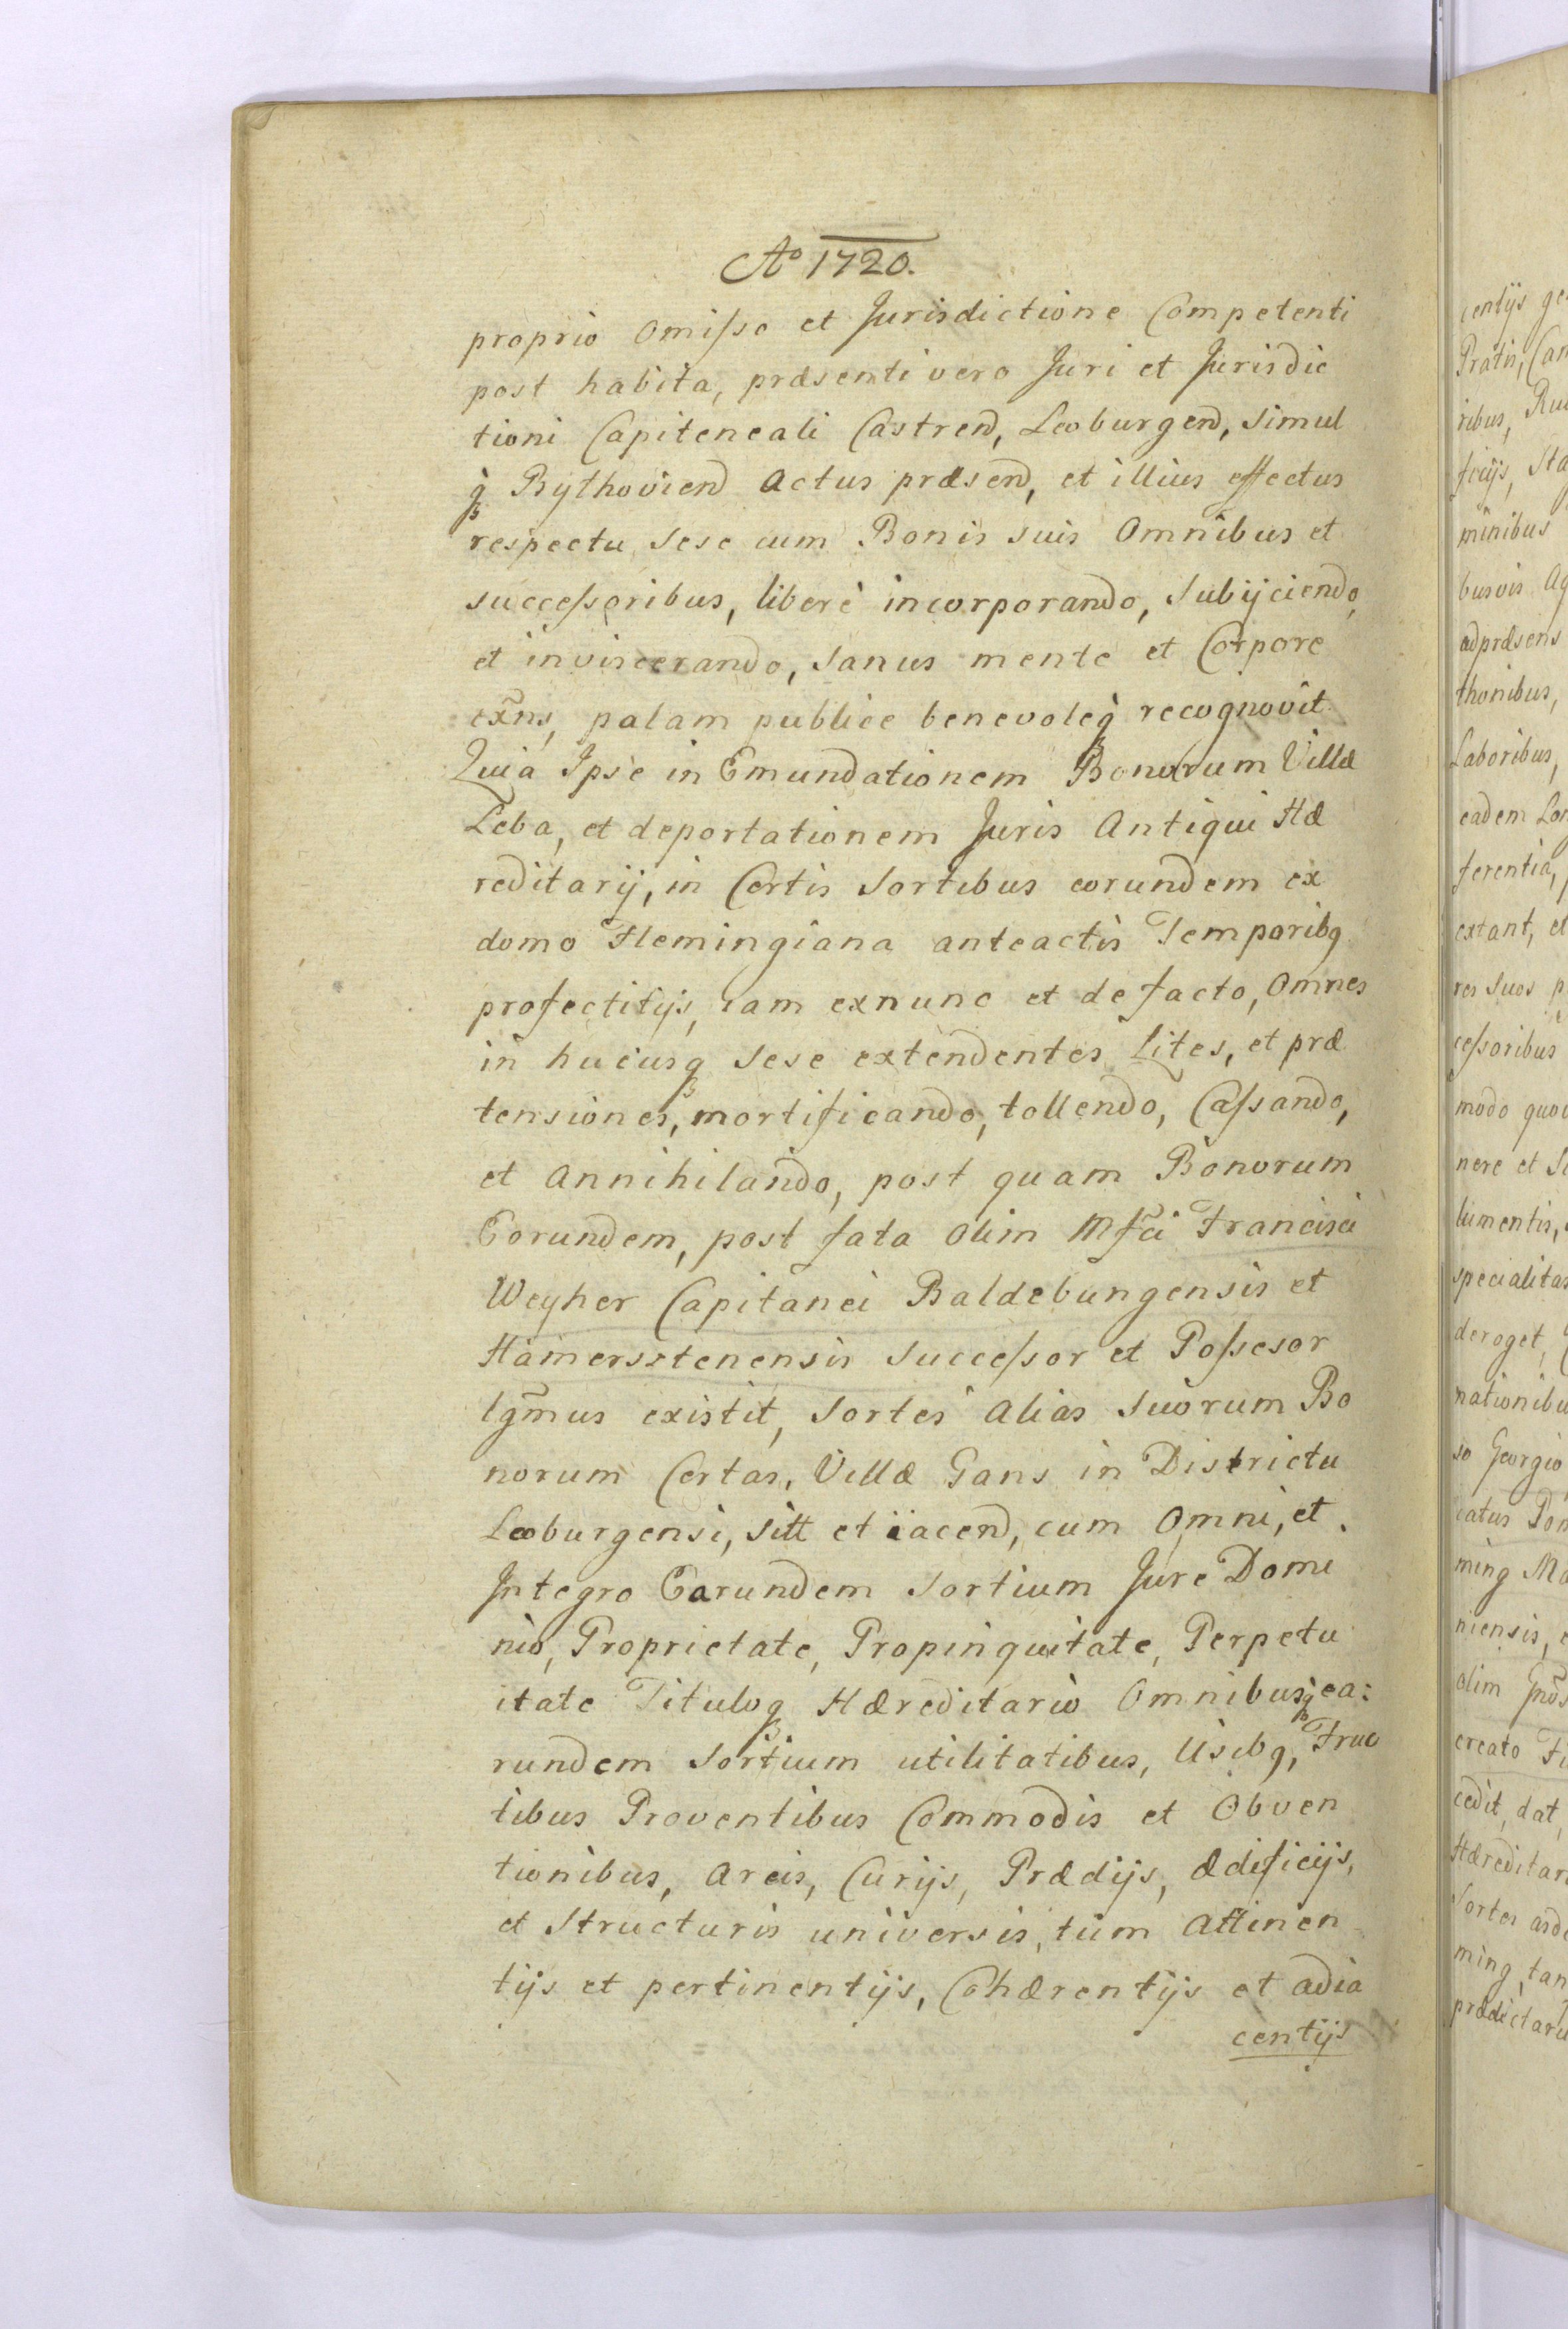 Ao 1720.
proprio omisso et Jurisdictione Competenti
post habita, præsenti vero Juri et Jurisdic
tioni Capiteneali Castren, Leoburgen, simul
q Bythovien actus præsen, et illius effectus
respectu sese cum Bonis suis omnibus et
successoribus, liberè incorporando, subijciendo,
et inviscerando, sanus mente et Corpore
exñs, palam publice benevoleq recognovit.
Quia Ipse in Emundationem Bonorum Villæ
Leba, et deportationem Juris Antiqui Hæ
reditarij, in Certis sortibus eorundem ex
domo Flemingiana anteactis Temporibq
profectitijs, iam exnunc et de facto, omnes
in hucusq sese extendentes Lites, et præ
tensiones, mortificando, tollendo, Cassando,
et annihilando, post quam Bonorum
Eorundem, post fata olim Mfci Francisci
Weyher Capitanei Baldebungensis et
Hamersztenensis successor et Possesor
lgmus existit, sortes alias suorum Bo
norum Certas, Villæ Gans in Districtu
Leoburgensi, sitt et iacen, cum omni, et
Integro Earundem sortium Jure Domi
nio, Proprietate, Propinquitate, Perpetu
itate Tituloq Hæreditario omnibusq ea:
rundem sortium utilitatibus, Usibq, Fruc
tibus Proventibus Commodis et Obven
tionibus, areis, Curijs, Prædijs, ædificijs,
et structuris universis, tum attinen
tijs et pertinentijs, Cohærentijs et adia
centijs
centijs
Pratis,
ribus,
ficijs,
minibus
busvis
adpræsens
thonibus,
Laboribus,
eadem
ferentia,
extant, et
res suos
cessoribus
modo
nere et
lumentis,
deroget,
so Georgio
catus
ming
niensis,
olim
creato
cedit, dat,
Sortes
ming, tan